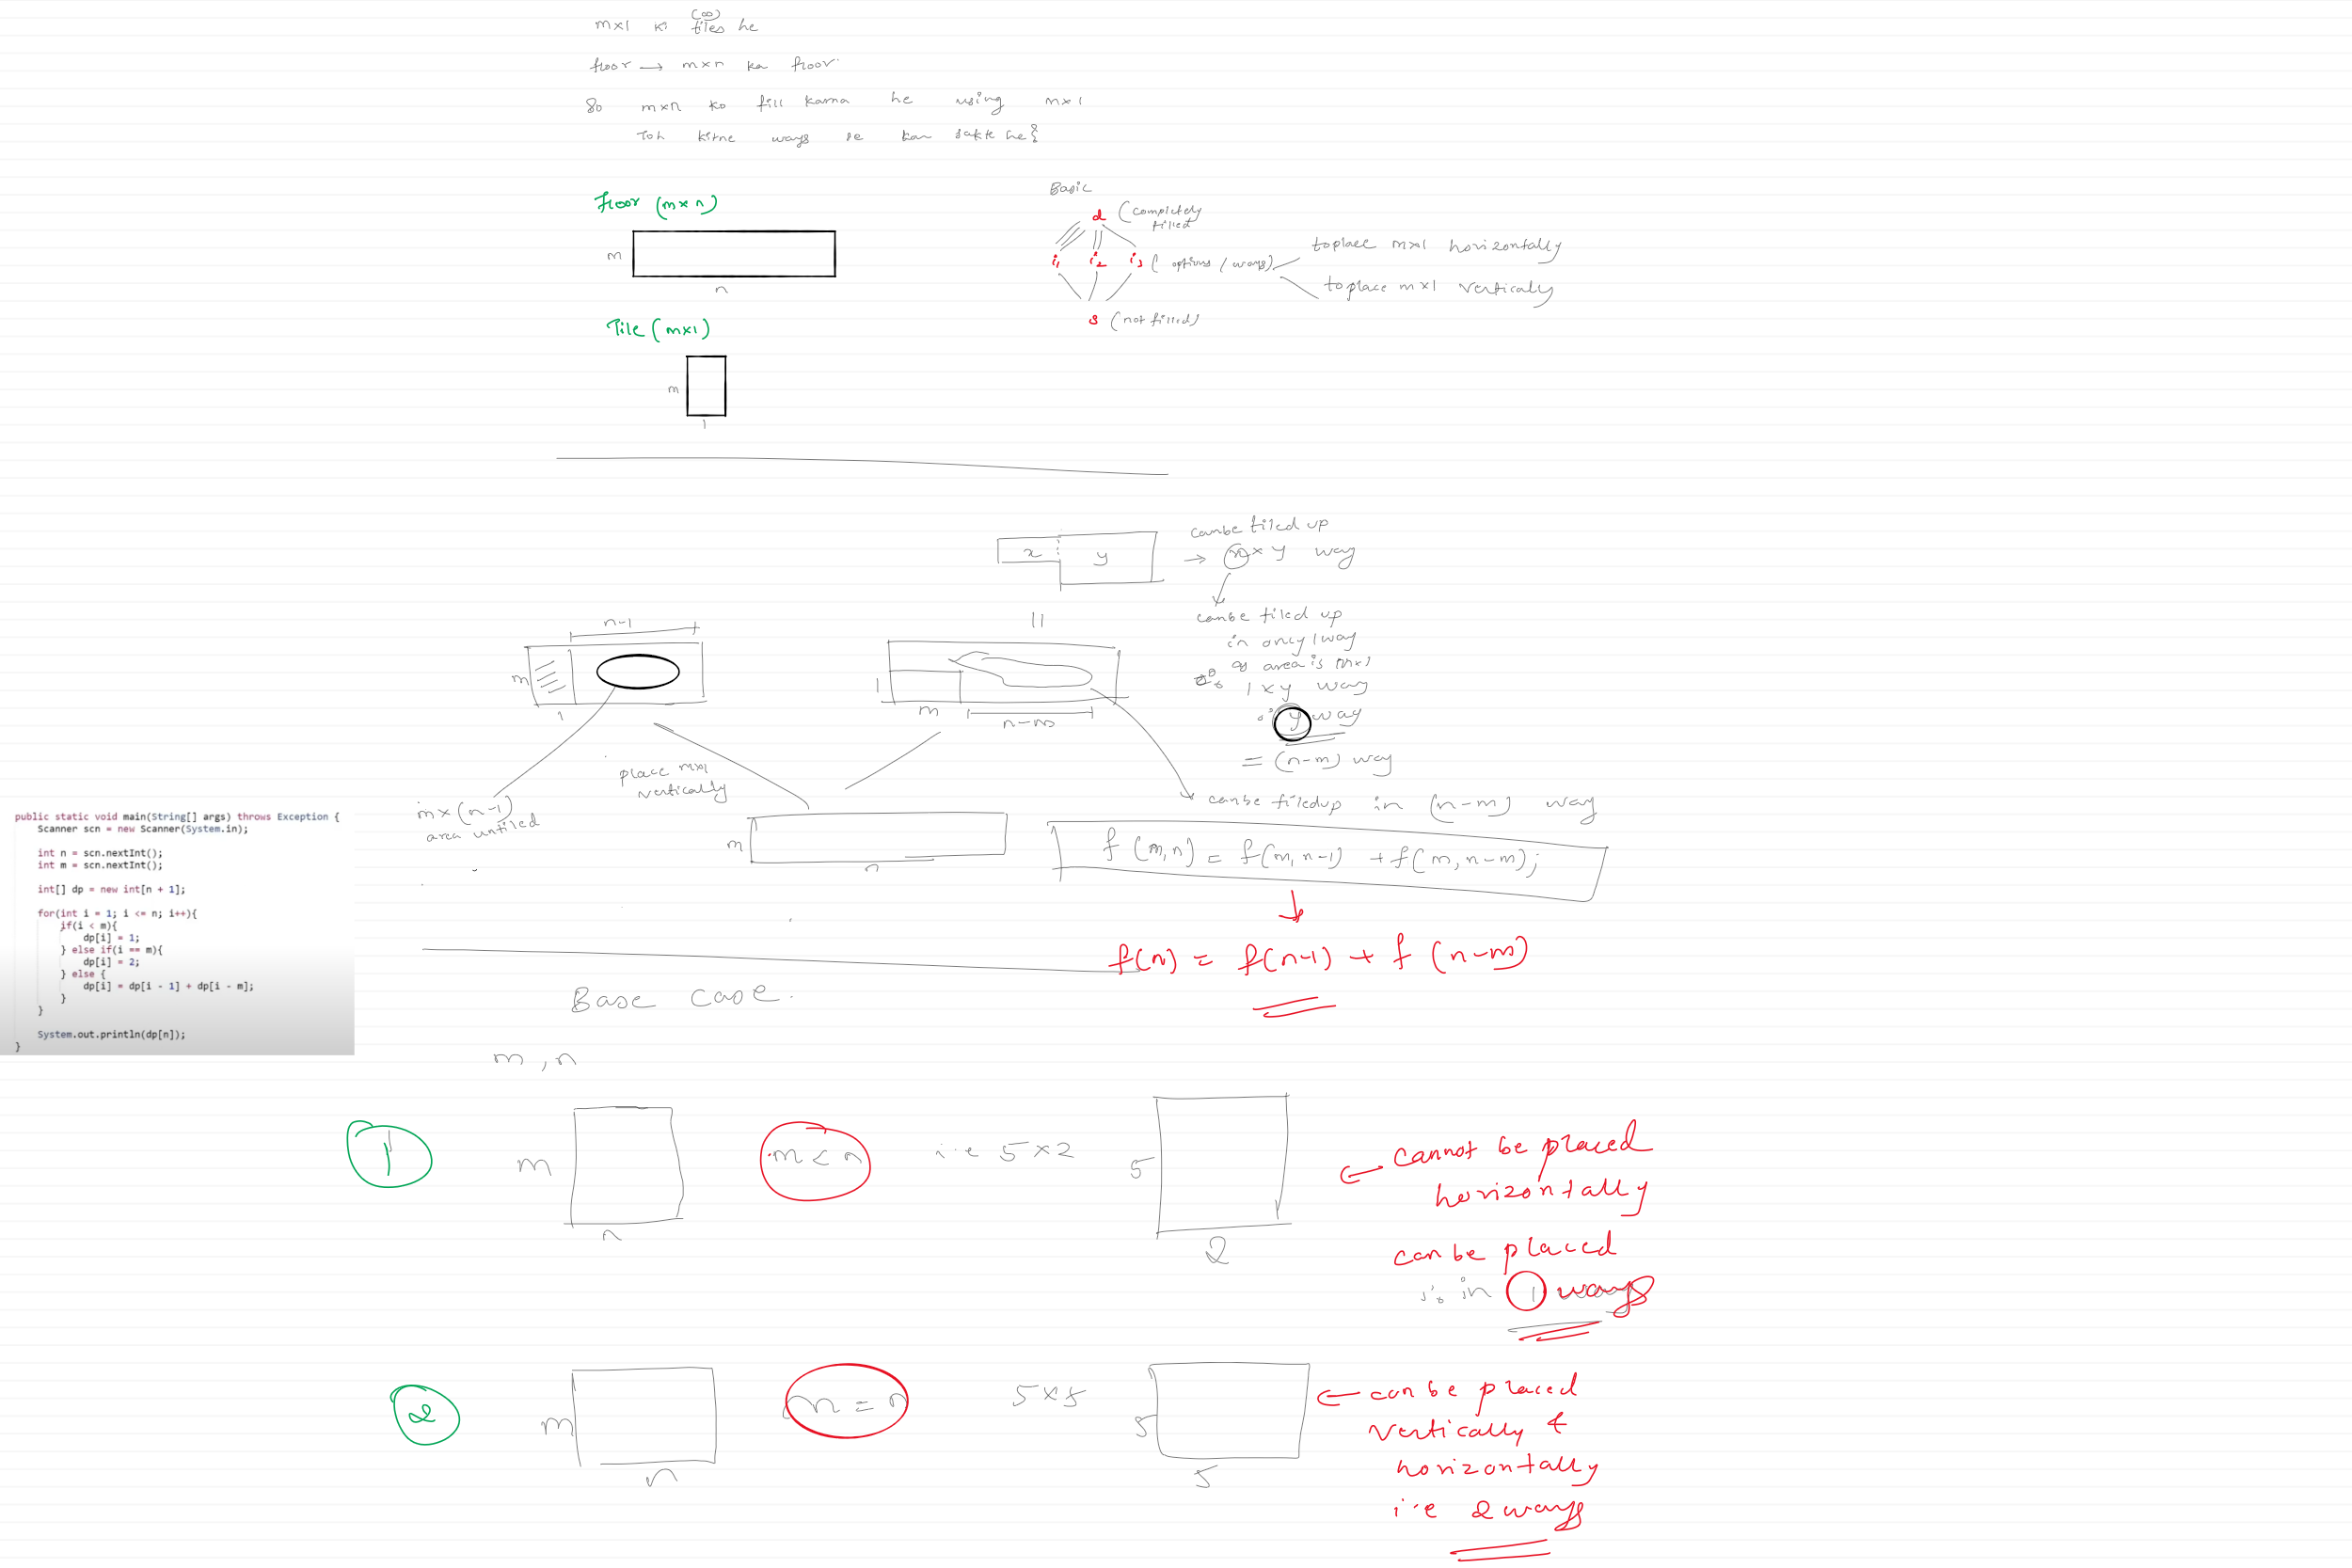 mx1 ki (∞) tiles he
floor → mxn ka floor
So mxn ko fill karna he using mx1
Toh kitne ways se kar sakte he?
Floor (mxn)
m
n
Tile (mx1)
m
1
Basic
d (completely filled
i1 i2 i3 (options / ways)
to place mx1 horizontally
to place mx1 vertically
s (not filled)
x y → x y way
can be tiled up
can be tiled up
in only 1 way
as area is mx1
1xy way
y way
= (n-m) way
n-1
m
1
1
m
n-m
place mx1
vertically
mx(n-1)
area untiled
m
n
can be tiledup in (n-m) way
f(m,n) = f(m,n-1) + f(m,n-m);
f(n) = f(n-1) + f(n-m)
public static void main(String[] args) throws Exception {
Scanner scn = new Scanner(System.in);
int n = scn.nextInt();
int m = scn.nextInt();
int[] dp = new int[n + 1];
for(int i = 1; i <= n; i++){
if(i < m){
dp[i] = 1;
} else if(i == m){
dp[i] = 2;
} else {
dp[i] = dp[i - 1] + dp[i - m];
}
}
System.out.println(dp[n]);
}
Base case.
m,n
1
m
n
m < n
i.e 5x2
5
2
cannot be placed
horizontally
can be placed
in 1 ways
2
m
n
m = n
5x5
5
5
can be placed
vertically &
horizontally
i.e 2 ways